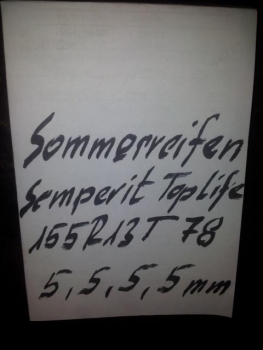 Sommerreifen
Semperit Toplife
155R13T 78
5,5,5,5mm